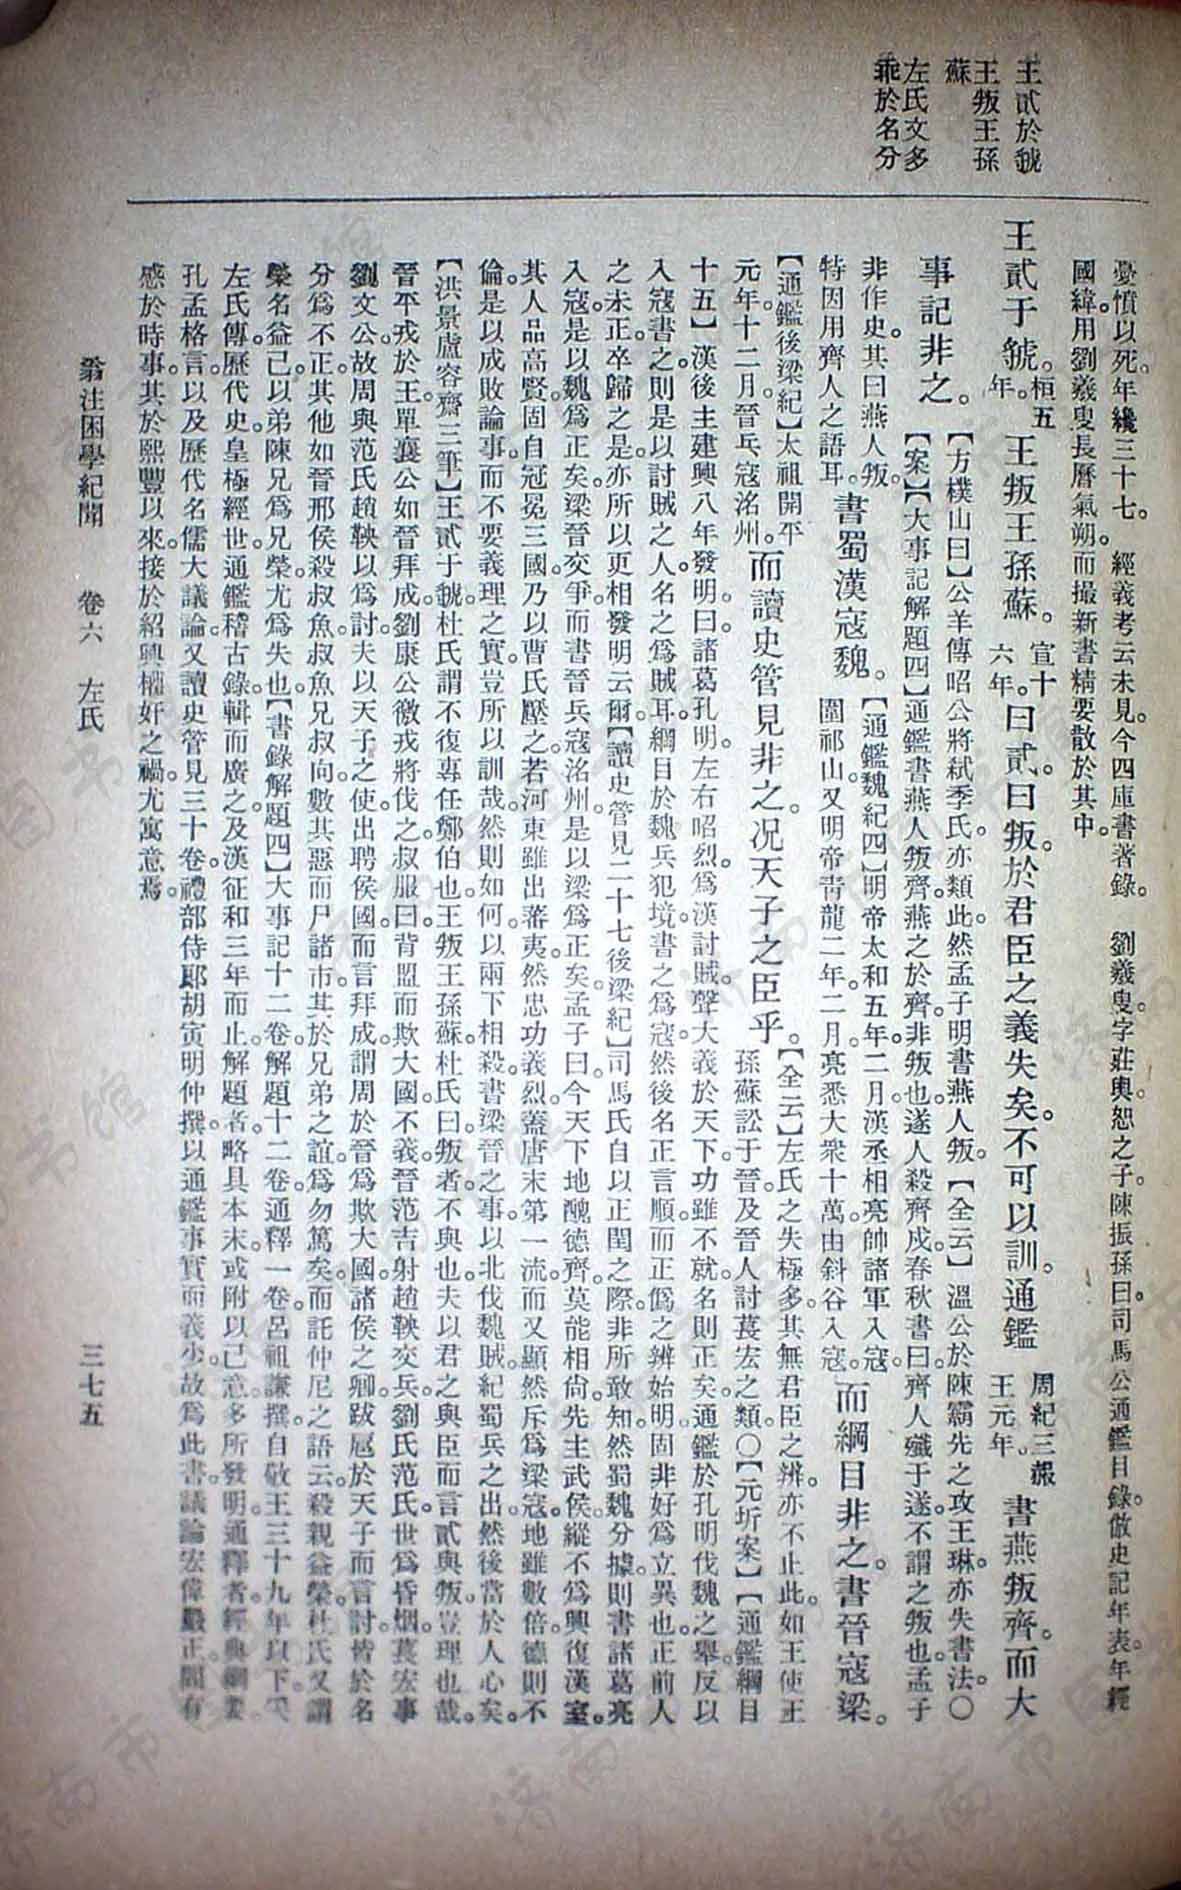 王貳於虢
王叛王孫
蘇
左氏文多
乖於名分
憂憤以死。年纔三十七。 經義考云未見。今四庫書著錄。 劉羲叟字莊輿。恕之子。陳振孫曰。司馬公通鑑目錄。倣史記年表。年經
國緯。用劉羲叟長曆氣朔。而撮新書精要。散於其中。
王貳于虢。桓五年。王叛王孫蘇。宣十六年。曰貳曰叛。於君臣之義失矣。不可以訓。通鑑周紀三赧王元年。書燕叛齊。而大
事記非之。【方樸山曰】公羊傳昭公將弑季氏。亦類此。然孟子明書燕人叛。【全云】溫公於陳霸先之攻王琳。亦失書法。〇
【案】【大事記解題四】通鑑書燕人叛齊。燕之於齊。非叛也。遂人殺齊戍。春秋書曰。齊人殲于遂。不謂之叛也。孟子
非作史。其曰燕人叛。
特因用齊人之語耳。書蜀漢寇魏。【通鑑魏紀四】明帝太和五年。二月。漢丞相亮帥諸軍入寇。
圍祁山。又明帝青龍二年。二月。亮悉大衆十萬由斜谷入寇。而綱目非之。書晉寇梁。
【通鑑後梁紀】太祖開平
元年。十二月。晉兵寇洺州。而讀史管見非之。况天子之臣乎。【全云】左氏之失極多。其無君臣之辨。亦不止此。如王使王
孫蘇訟于晉。及晉人討萇宏之類。〇【元圻案】【通鑑綱目
十五】漢後主建興八年。發明曰。諸葛孔明。左右昭烈。爲漢討賊。聲大義於天下。功雖不就。名則正矣。通鑑於孔明伐魏之舉。反以
入寇書之。則是以討賊之人。名之爲賊耳。綱目於魏兵犯境。書之爲寇。然後名正言順。而正僞之辨始明。固非好爲立異也。正前人
之未正。卒歸之是。亦所以更相發明云爾。【讀史管見二十七後梁紀】司馬氏自以正閏之際。非所敢知。然蜀魏分據。則書諸葛亮
入寇。是以魏爲正矣。梁晉交爭。而書晉兵寇洺州。是以梁爲正矣。孟子曰。今天下地醜德齊。莫能相尙。先主武侯。縱不爲興復漢室。
其人品高賢。固自冠冕三國。乃以曹氏壓之。若河東雖出蕃夷。然忠功義烈。蓋唐末第一流。而又顯然斥爲梁寇。地雖數倍。德則不
倫。是以成敗論事。而不要義理之實。豈所以訓哉。然則如何。以兩下相殺。書梁晉之事。以北伐魏賊。紀蜀兵之出。然後當於人心矣。
【洪景盧容齋三筆】王貳于虢。杜氏謂不復專任鄭伯也。王叛王孫蘇。杜氏曰。叛者。不與也。夫以君之與臣而言貳與叛。豈理也哉。
晉平戎於王。單襄公如晉拜成。劉康公徼戎將伐之。叔服曰。背盟而欺大國。不義。晉范吉射趙鞅交兵。劉氏范氏。世爲昏烟。萇宏事
劉文公。故周與范氏。趙鞅以爲討。夫以天子之使出聘侯國。而言拜成。謂周於晉爲欺大國。諸侯之卿。跋扈於天子而言討。皆於名
分爲不正。其他如晉邢侯殺叔魚。叔魚兄叔向。數其惡而尸諸市。其於兄弟之誼。爲勿篤矣。而託仲尼之語云。殺親益榮。杜氏又謂
榮名益己。以弟陳兄爲兄榮。尤爲失也。【書錄解題四】大事記十二卷。解題十二卷。通釋一卷。呂祖謙撰。自敬王三十九年以下。采
左氏傳。歷代史。皇極經世。通鑑。稽古錄。輯而廣之。及漢征和三年而止。解題者。略具本末。或附以己意。多所發明。通釋者。經典綱要。
孔孟格言。以及歷代名儒大議論。又讀史管見三十卷。禮部侍郎胡寅明仲撰。以通鑑事實而義少。故爲此書。議論宏偉嚴正。間有
感於時事。其於熙豐以來。接於紹興權奸之禍。尤寓意焉。
翁注困學紀聞 卷六 左氏 三七五